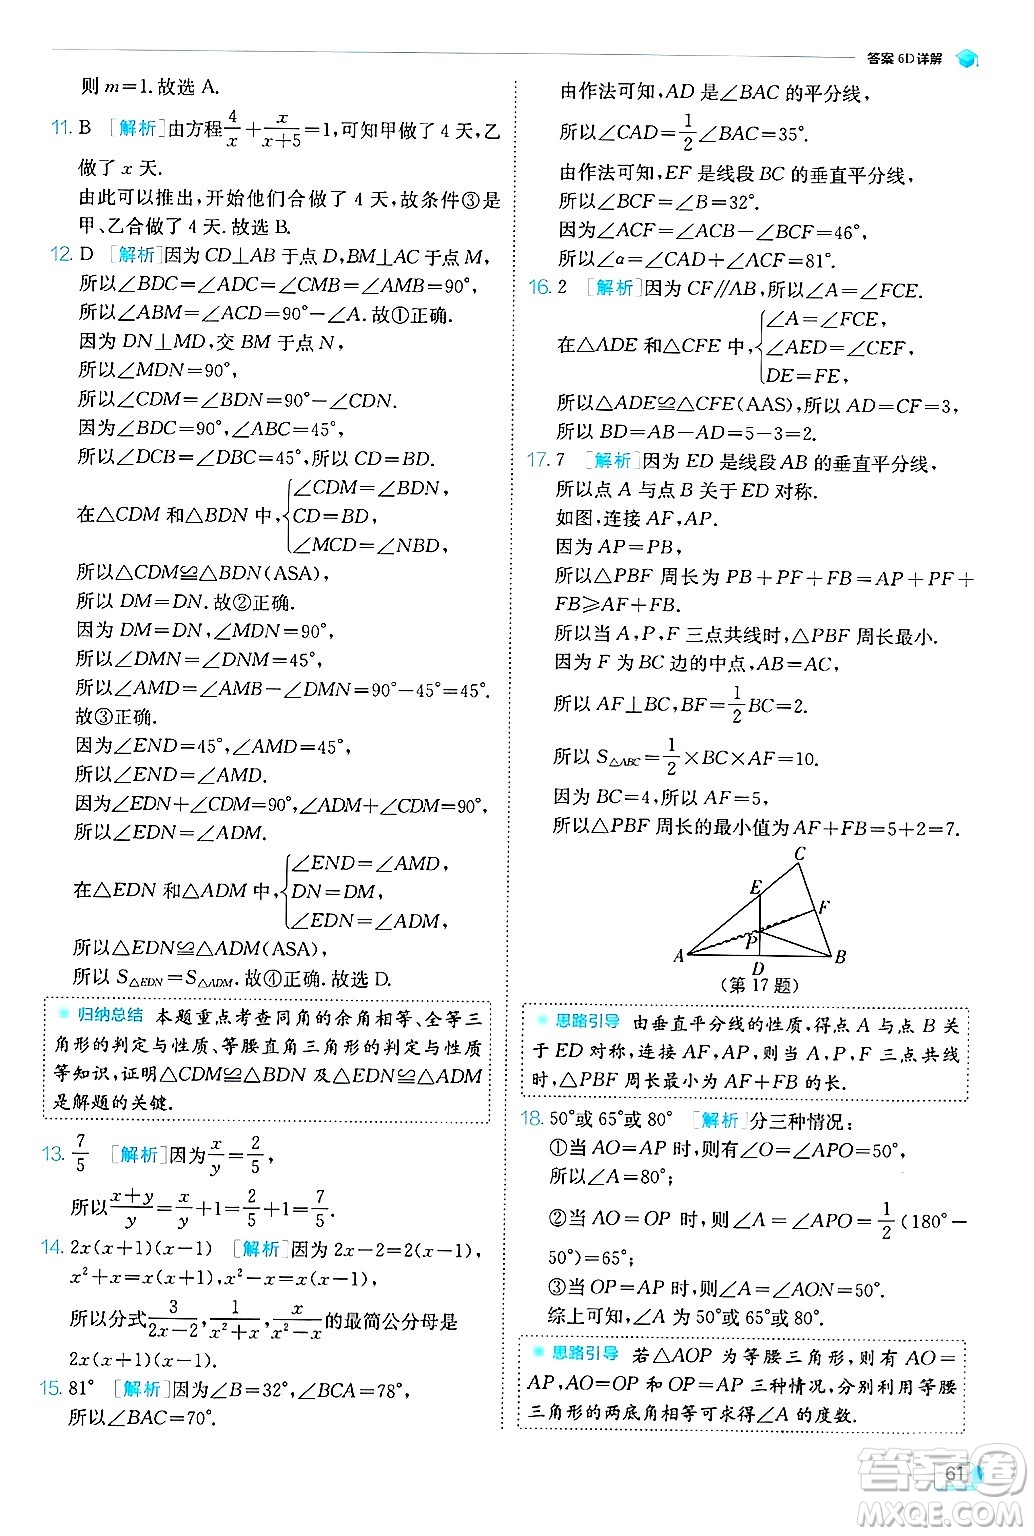 答案 6D 详解
则 m=1. 故选 A.
11. B [解析]由方程4/x+x/(x+5)=1,可知甲做了 4 天,乙
做了 x 天.
由此可以推出,开始他们合做了 4 天,故条件③是
甲、乙合做了 4 天. 故选 B.
12. D [解析]因为 CD⊥AB 于点 D,BM⊥AC 于点 M,
所以∠BDC=∠ADC=∠CMB=∠AMB=90°,
所以∠ABM=∠ACD=90°-∠A. 故①正确.
因为 DN⊥MD,交 BM 于点 N,
所以∠MDN=90°,
所以∠CDM=∠BDN=90°-∠CDN.
因为∠BDC=90°,∠ABC=45°,
所以∠DCB=∠DBC=45°,所以 CD=BD.
在△CDM 和△BDN 中,{∠CDM=∠BDN,
CD=BD,
∠MCD=∠NBD,
所以△CDM≌△BDN(ASA),
所以 DM=DN. 故②正确.
因为 DM=DN,∠MDN=90°,
所以∠DMN=∠DNM=45°,
所以∠AMD=∠AMB-∠DMN=90°-45°=45°.
故③正确.
因为∠END=45°,∠AMD=45°,
所以∠END=∠AMD.
因为∠EDN+∠CDM=90°,∠ADM+∠CDM=90°,
所以∠EDN=∠ADM.
在△EDN 和△ADM 中,{∠END=∠AMD,
DN=DM,
∠EDN=∠ADM,
所以△EDN≌△ADM(ASA),
所以 S△EDN=S△ADM. 故④正确. 故选 D.
归纳总结 本题重点考查同角的余角相等、全等三
角形的判定与性质、等腰直角三角形的判定与性质
等知识,证明△CDM≌△BDN 及△EDN≌△ADM
是解题的关键.
13. 7/5 [解析]因为x/y=2/5,
所以(x+y)/y=x/y+1=2/5+1=7/5.
14. 2x(x+1)(x-1) [解析]因为 2x-2=2(x-1),
x²+x=x(x+1),x²-x=x(x-1),
所以分式3/(2x-2),1/(x²+x),x/(x²-x)的最简公分母是
2x(x+1)(x-1).
15. 81° [解析]因为∠B=32°,∠BCA=78°,
所以∠BAC=70°.
由作法可知,AD 是∠BAC 的平分线,
所以∠CAD=1/2∠BAC=35°.
由作法可知,EF 是线段 BC 的垂直平分线,
所以∠BCF=∠B=32°.
因为∠ACF=∠ACB-∠BCF=46°,
所以∠α=∠CAD+∠ACF=81°.
16. 2 [解析]因为 CF∥AB,所以∠A=∠FCE.
在△ADE 和△CFE 中,{∠A=∠FCE,
∠AED=∠CEF,
DE=FE,
所以△ADE≌△CFE(AAS),所以 AD=CF=3,
所以 BD=AB-AD=5-3=2.
17. 7 [解析]因为 ED 是线段 AB 的垂直平分线,
所以点 A 与点 B 关于 ED 对称.
如图,连接 AF,AP.
因为 AP=PB,
所以△PBF 周长为 PB+PF+FB=AP+PF+
FB≥AF+FB.
所以当 A,P,F 三点共线时,△PBF 周长最小.
因为 F 为 BC 边的中点,AB=AC,
所以 AF⊥BC,BF=1/2BC=2.
所以 S△ABC=1/2×BC×AF=10.
因为 BC=4,所以 AF=5,
所以△PBF 周长的最小值为 AF+FB=5+2=7.
C
E
F
P
A
D
B
(第 17 题)
思路引导 由垂直平分线的性质,得点 A 与点 B 关
于 ED 对称,连接 AF,AP,则当 A,P,F 三点共线
时,△PBF 周长最小为 AF+FB 的长.
18. 50°或 65°或 80° [解析]分三种情况:
①当 AO=AP 时,则有∠O=∠APO=50°,
所以∠A=80°;
②当 AO=OP 时,则∠A=∠APO=1/2(180°-
50°)=65°;
③当 OP=AP 时,则∠A=∠AON=50°.
综上可知,∠A 为 50°或 65°或 80°.
思路引导 若△AOP 为等腰三角形,则有 AO=
AP,AO=OP 和 OP=AP 三种情况,分别利用等腰
三角形的两底角相等可求得∠A 的度数.
61
答案圈
MXQE.COM